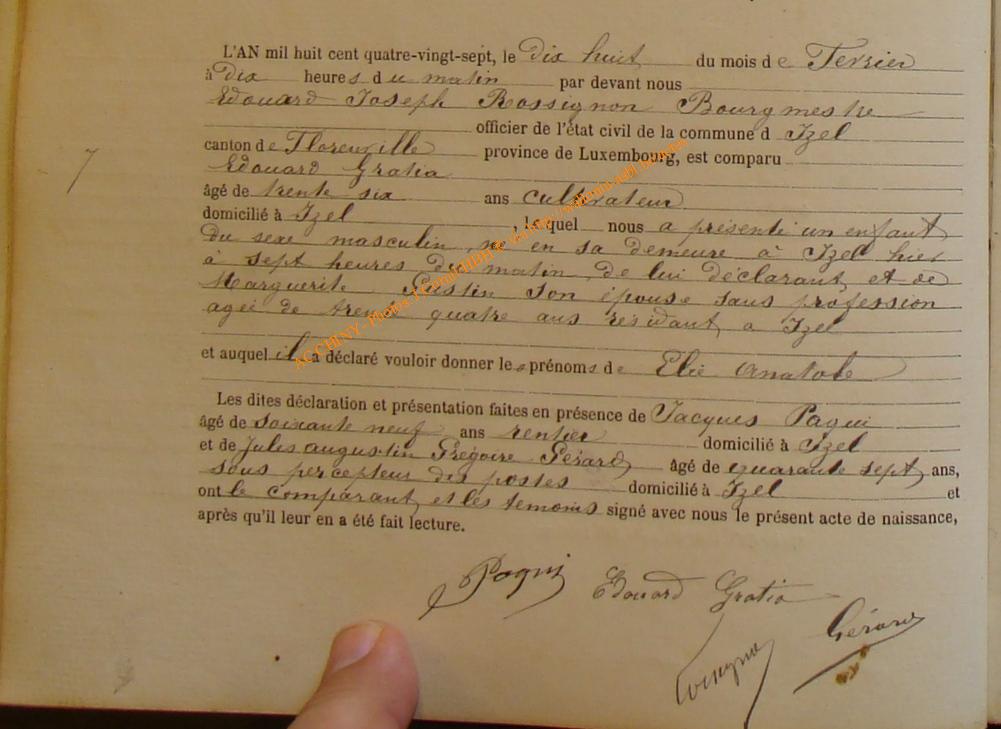 L'AN mil huit cent quatre-vingt-sept, le dix huit du mois de Fevrier
à dix heures du matin par devant nous
Edouard Joseph Rossignon Bourgmestre
officier de l'état civil de la commune d Izel
canton de Florenville province de Luxembourg, est comparu
Edouard Gratia
âgé de trente six ans cultivateur
domicilié à Izel lequel nous a présenté un enfant
du sexe masculin, né en sa demeure à Izel hier
à sept heures du matin, de lui déclarant et de
Marguerite son épouse sans profession
agée de trente quatre ans résidant à Izel
et auquel il a déclaré vouloir donner les prénoms de Elie Anatole
Les dites déclaration et présentation faites en présence de Jacques Paqui
âgé de soixante neuf ans rentier domicilié à Izel
et de Jules augustin Grégoire Gérard âgé de quarante sept ans,
sous percepteur des postes domicilié à Izel et
ont le comparant et les temoins signé avec nous le présent acte de naissance,
après qu'il leur en a été fait lecture.
7
Paqui Edouard Gratia
Gérard